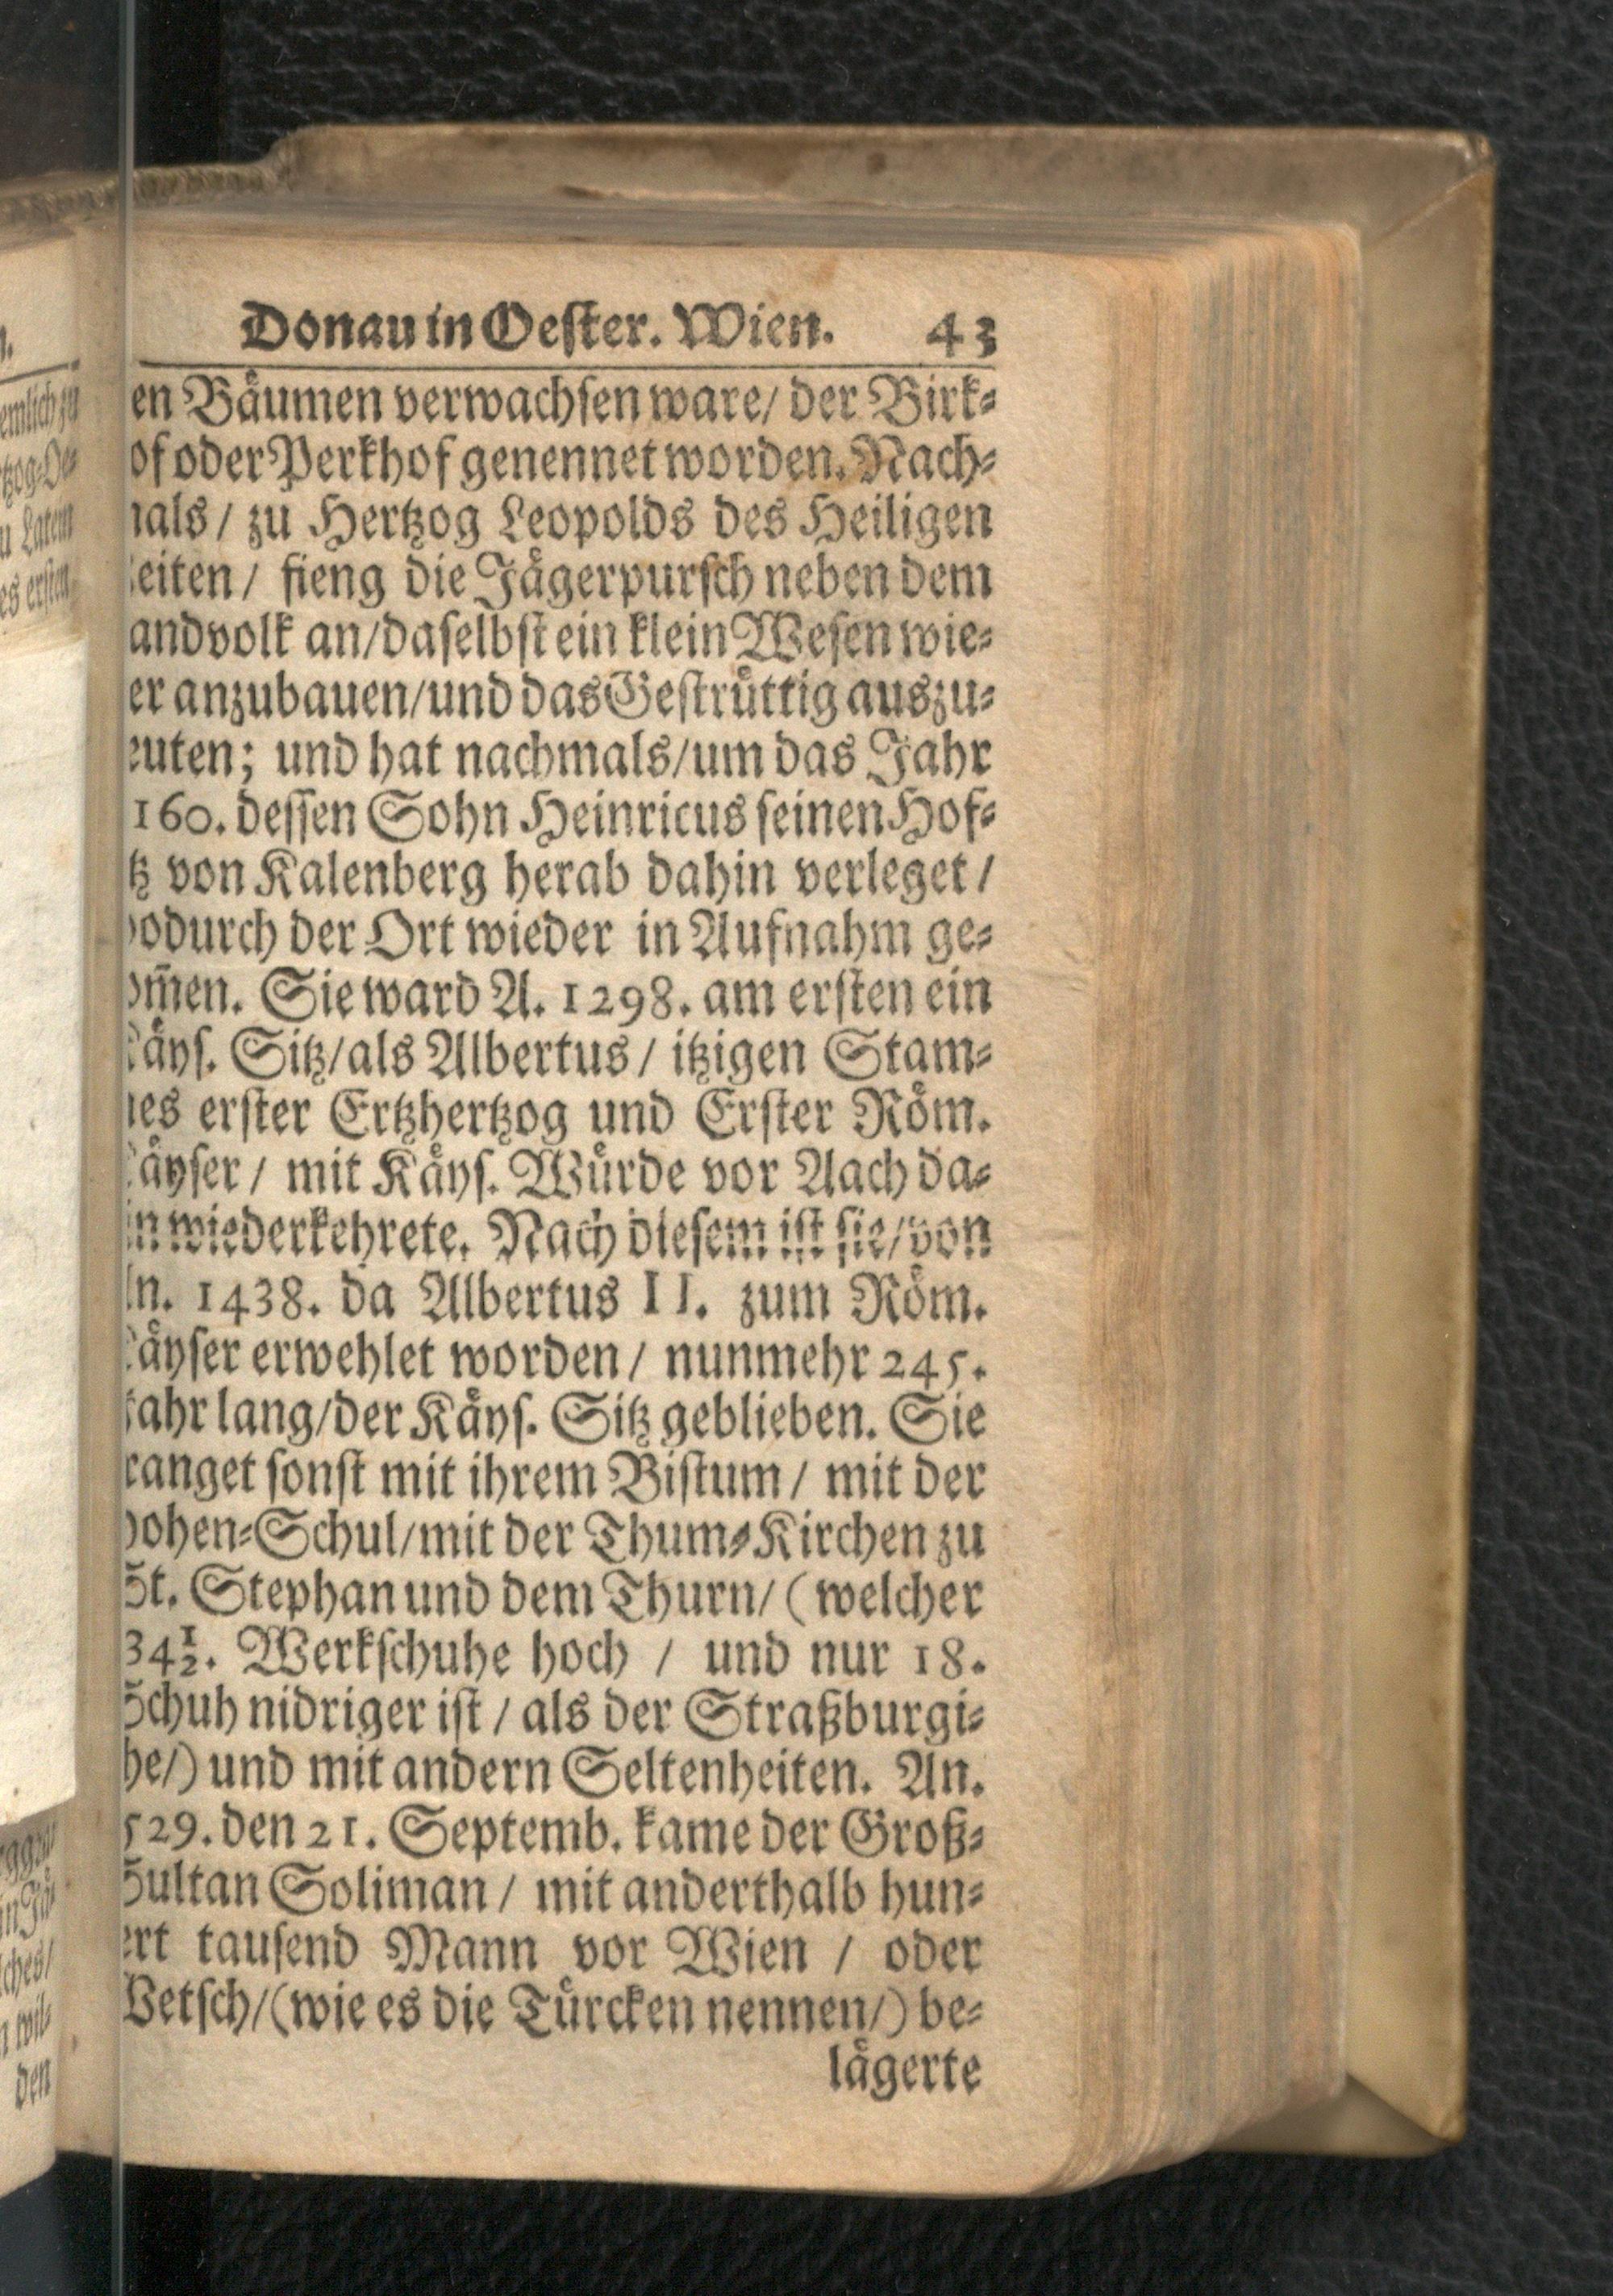 Donau in Oester. Wien. 43
en Bäumen verwachsen ware/ der Birk-
of oder Perkhof genennet worden. Nach-
als/ zu Hertzog Leopolds des Heiligen
eiten/ fieng die Jägerpursch neben dem
andvolk an/ daselbst ein klein Wesen wie-
er anzubauen/ und das Gestrüttig auszu-
euten; und hat nachmals/ um das Jahr
160. dessen Sohn Heinricus seinen Hof-
tz von Kalenberg herab dahin verleget/
odurch der Ort wieder in Aufnahm ge-
om̃en. Sie ward A. 1298. am ersten ein
äys. Sitz/ als Albertus/ itzigen Stam-
es erster Ertzhertzog und Erster Röm.
äyser/ mit Käys. Würde vor Aach da-
in wiederkehrete. Nach diesem ist sie/ von
n. 1438. da Albertus II. zum Röm.
äyser erwehlet worden/ nunmehr 245.
ahr lang/ der Käys. Sitz geblieben. Sie
ranget sonst mit ihrem Bistum/ mit der
hohen-Schul/ mit der Thum-Kirchen zu
St. Stephan und dem Thurn/ (welcher
34½. Werkschuhe hoch/ und nur 18.
Schuh nidriger ist/ als der Straßburgi-
he/) und mit andern Seltenheiten. An.
529. den 21. Septemb. kame der Groß-
Sultan Soliman/ mit anderthalb hun-
ert tausend Mann vor Wien/ oder
Betsch/ (wie es die Türcken nennen/) be-
lägerte